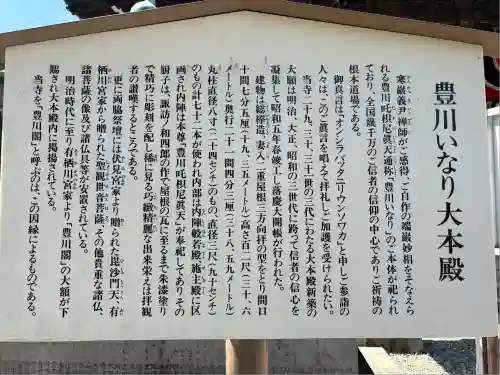 豊川いなり大本殿
寒巌義尹禅師がご感得、ご自作の端厳妙相をそなえら
れる豊川吒枳尼眞天(通称、豊川いなり)のご本体が祀られ
ており、全国幾千万のご信者の信仰の中心でありご祈祷の
根本道場である。
御真言は「オンシラバッタニリウンソワカ」と申しご参詣の
人々は、このご眞言を唱えて拝礼しご加護を受けられたい。
当寺二十九、三十、三十一世の三代にわたる大本殿新築の
大願は明治、大正、昭和の三世代に跨って信者の信心を
凝集して昭和五年春竣工し落慶大開帳が行われた。
建物は総欅造、妻入二重屋根三方向拝の型をとり間口
十間七分五厘(十九、三五メートル)高さ百二尺(三十、六
メートル)奥行二十一間四分三厘(三十八、五九メートル)
丸柱直径八寸(二十四センチ)のもの、直径三尺(九十センチ)
のもの計七十二本が使われ内部は内陣般若殿、施主殿に区
画され内陣は本尊「豊川吒枳尼眞天」が奉祀してありその
厨子は、諏訪ノ和四郎の作で屋根の瓦に至るまで朱漆塗り
で精巧な彫刻を配し稀に見る巧緻精麗な出来栄えは拝観
者の讃嘆するところである。
更に両脇祭壇には伏見宮家より贈られた毘沙門天、有
栖川宮家から贈られた聖観世音菩薩、その他貴重な諸仏、
諸菩薩の像及び諸仏具等が安置されている。
明治時代に至り有栖川宮家より「豊川閣」の大額が下
賜され大本殿内に掲揚されている。
当寺を、「豊川閣」と呼ぶのは、この因縁によるものである。